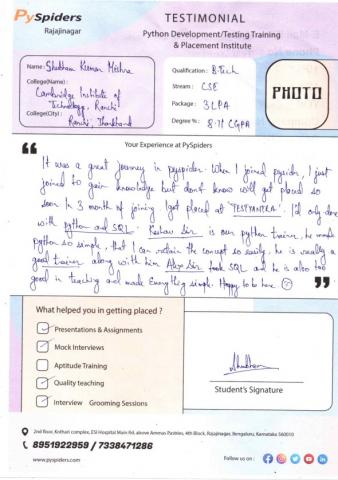 PySpiders
Rajajinagar
TESTIMONIAL
Python Development/Testing Training
& Placement Institute
Name: Shubham Kumar Mishra
College(Name):
Cambridge Institute of
Technology, Ranchi
College(City):
Ranchi, Jharkhand
Qualification: B.Tech
Stream: CSE
Package: 3 LPA
Degree %: 8.71 CGPA
PHOTO
Your Experience at PySpiders
It was a great journey in pyspider. When I joined pyspider, I just
joined to gain knowledge but don't know will get placed so
soon. In 3 month of joining I get placed at "TESTYANTRA". I'd only done
with python and SQL. Keshav Sir is our python trainer, he made
python so simple, that I can retain the concept so easily, he is really a
good trainer along with him Alay Sir took SQL and he is also too
good in teaching and made Everything simple. Happy to be here ☺
What helped you in getting placed ?
Presentations & Assignments
Mock Interviews
Aptitude Training
Quality teaching
Interview Grooming Sessions
Shubham
Student's Signature
2nd floor, Kothari complex, ESI Hospital Main Rd, above Ammas Pastries, 4th Block, Rajajinagar, Bengaluru, Karnataka 560010
8951922959 / 7338471286
www.pyspiders.com
Follow us on :